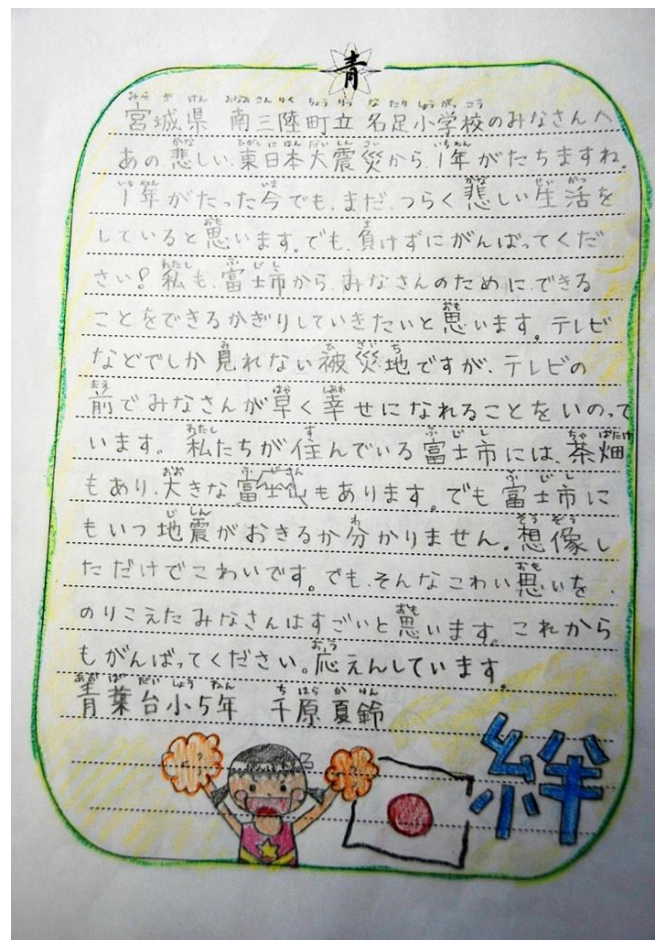 青
宮城県 南三陸町立 名足小学校のみなさんへ
あの、悲しい、東日本大震災から、1年がたちますね。
1年がたった今でも、まだ、つらく悲しい生活を
していると思います。でも、負けずにがんばってくだ
さい!私も、富士市から、みなさんのために、できる
ことをできるかぎりしていきたいと思います。テレビ
などでしか見れない被災地ですが、テレビの
前でみなさんが早く幸せになれることをいのって
います。私たちが住んでいる富士市には、茶畑
もあり、大きな富士山もあります。でも富士市に
もいつ地震がおきるか分かりません。想像し
ただけでこわいです。でも、そんなこわい思いを
のりこえたみなさんはすごいと思います。これから
もがんばってください。応えんしています。
青葉台小5年 千原夏鈴
絆